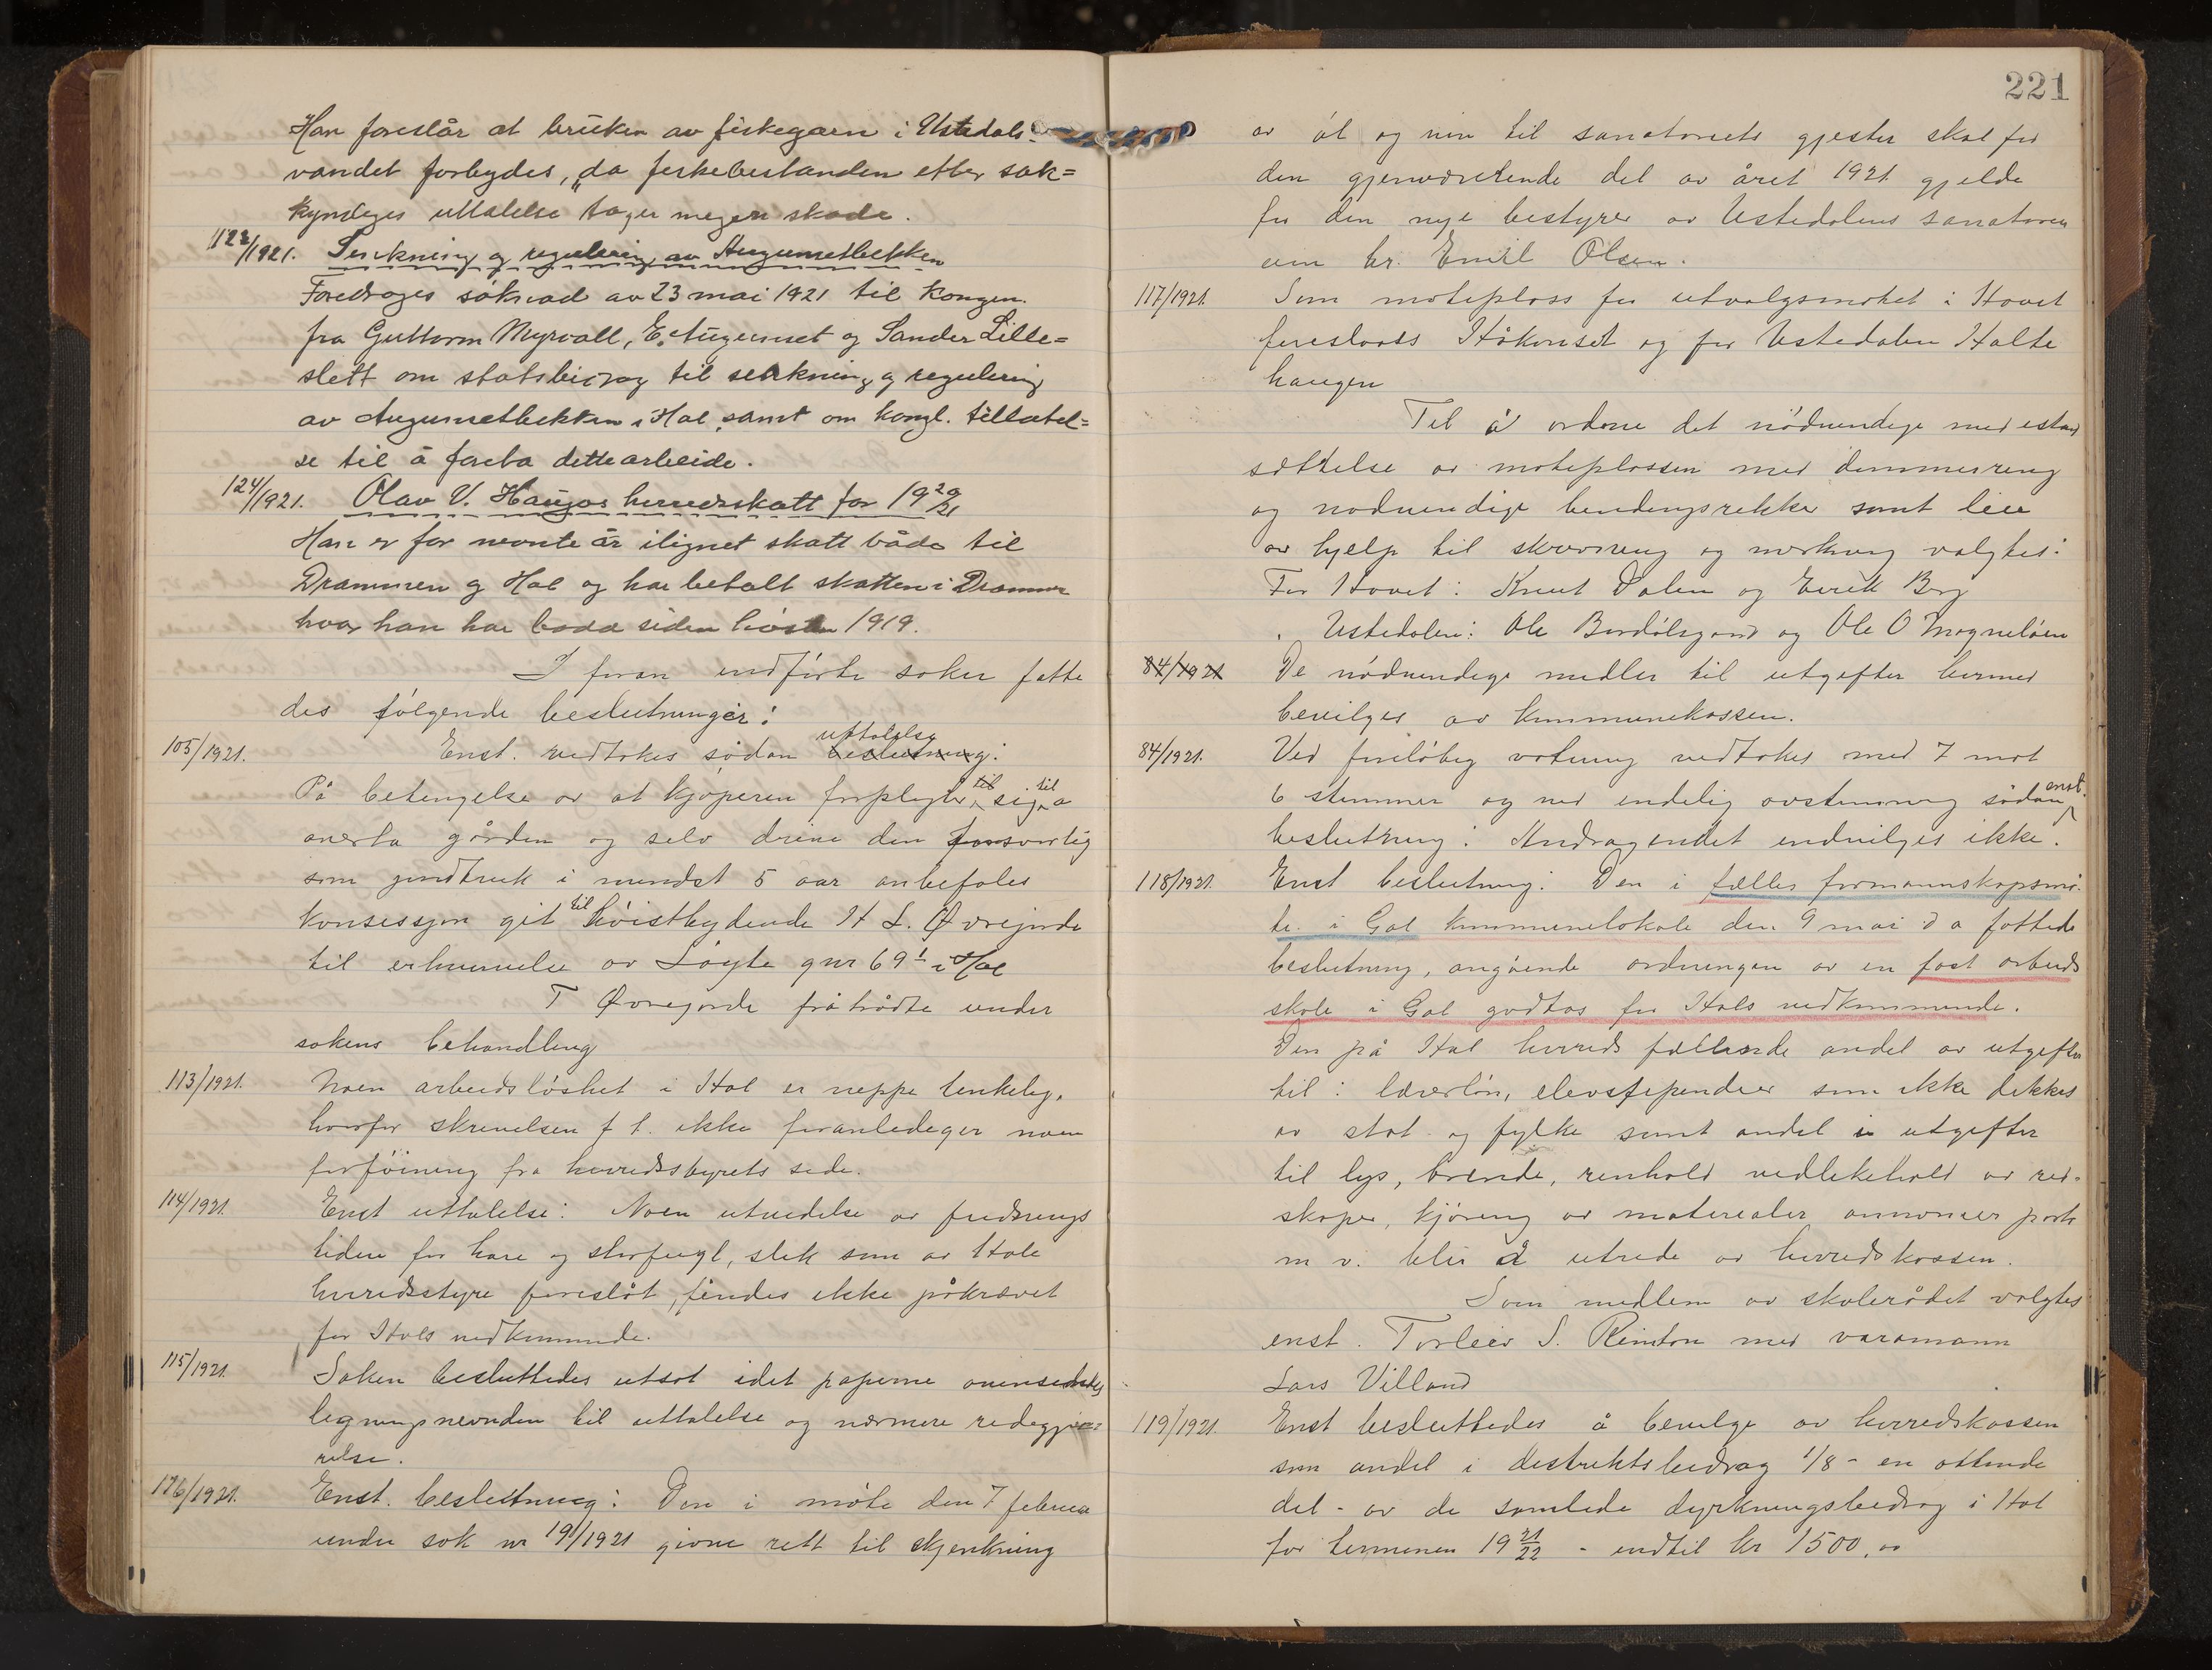 Han foreslår at bruken av fiskegarn i Ustedals-
vandet forbydes, "da fiskebestanden etter sak=
kyndiges uttalelse tager megen skade.
123/1921. Senkning og regulering av Augunsetbekken
Foredroges söknad av 23 mai 1921 til kongen
fra Guttorm Myrvoll, E. Augunset og Sander Lille=
slett om statsbidrag til senkning og regulering
av Augunsetbekken i Hol, samt om kongl. tillatel=
se til å foreta dette arbeide.
124/1921. Olav V. Haugos herredskatt for 1920/21
Han er for nevnte år ilignet skatt både til
Drammen og Hol og har betalt skatten i Drammen
hvor han har bodd siden hösten 1919.
I foran indförte saker fatte
des fölgende beslutninger:
105/1921. Enst. vedtokes sådan beslutning: uttalelse
På betingelse av at kjöperen forplegter til sig til a
overta gården og selv drive den forsvarlig
som jordbruk i mindst 5 aar anbefales
konsessjon git til höistbydende H L. Øvrejorde
til erhvervelse av Löyte gnr 69¹ i Hol
T Øvrejorde fråtrådte under
sakens behandling
113/1921. Noen arbeidslöshet i Hol er neppe tenkelig.
hvorfor skrivelsen f t. ikke foranlediger noen
forföining fra herredsstyrets side.
114/1921. Enst uttalelse: Noen utvidelse av frednings
tiden for hare og storfugl, slik som av Hole
herredsstyre foreslåt, findes ikke påkrævet
for Hols vedkommende.
115/1921. Saken besluttedes utsat idet papirene oversendes
ligningsnevnden til uttalelse og nærmere redegjö=
relse.
116/1921. Enst. beslutning: Den i möte den 7 februar
under sak nr 19/1921 givne rett til skjenkning
221
av öl og vin til sanatoriets gjester skal for
den gjenværende del av året 1921 gjelde
for den nye bestyrer av Ustedalens sanatori
um hr. Emil Olsen.
117/1921. Som moteplass for utvalgsmotet i Hovet
foreslaaes Håkonset og for Ustedalen Halte
haugen
Til å ordne det nödvendige med istand
settelse av moteplassen med
og nodvendige bindingsrekker samt leie
av hjelp til skrivning og merkning valgtes:
For Hovet: Knut Dalen og Eirik Berg
" Ustedalen: Ole Bardölsgard og Ole O Mogneløen
84/1921 De nödvendige midler til utgifter hermed
bevilges av kommunekassen.
84/1921. Ved forelöbig votering vedtokes med 7 mot
6 stemmer og ved endelig avstemning sådan enst.
beslutning: Andragendet indvilges ikke.
118/1921. Enst beslutning: Den i felles formannskapsmö-
te i Gol kommunelokale den 9 mai d a fattede
beslutning, angående ordningen av en fast arbeids
skole i Gol godtas for Hols vedkommende.
Den på Hol herred fallende andel av utgifter
til: lærerlön, elevstipendier som ikke dekkes
av stat og fylke samt andel i utgifter
til lys, brende, renhold vedlikehold av red-
skaper, kjöring av materialer annonser porto
m v. blir å utrede av herredskassen.
Som medlem av skolerådet valgtes
enst. Torleiv S. Reinton med varamann
Lars Villand
119/1921. Enst besluttedes å bevilge av herredskassen
som andel i distriktsbidrag 1/8 - en ottende
del - av de samlede dyrkningsbidrag i Hol
for terminen 19 21/22 - indtil kr 1500,00